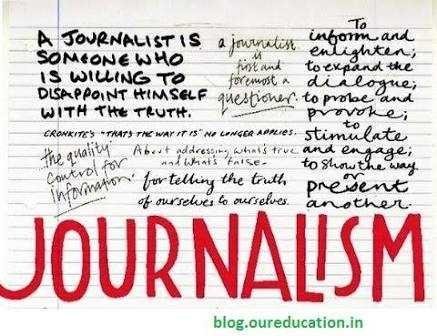 A JOURNALIST IS
SOMEONE WHO
IS WILLING TO
DISAPPOINT HIMSELF
WITH THE TRUTH.
a journalist
is
first and
foremost a
questioner.
To
inform and
enlighten;
to expand the
dialogue;
to probe and
provoke;
to
stimulate
and engage;
to show the way
or
present
another.
CRONKITE'S "THAT'S THE WAY IT IS" NO LONGER APPLIES.
the quality
control for
information.
About addressing what's true
and what's false.
for telling the truth
of ourselves to ourselves.
JOURNALISM
blog.oureducation.in